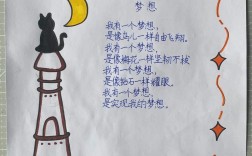 梦想
我有一个梦想,
是像鸟儿一样自由飞翔。
我有一个梦想,
是像梅花一样坚韧不拔
我有一个梦想,
是像钻石一样耀眼。
我有一个梦想,
是实现我的梦想。